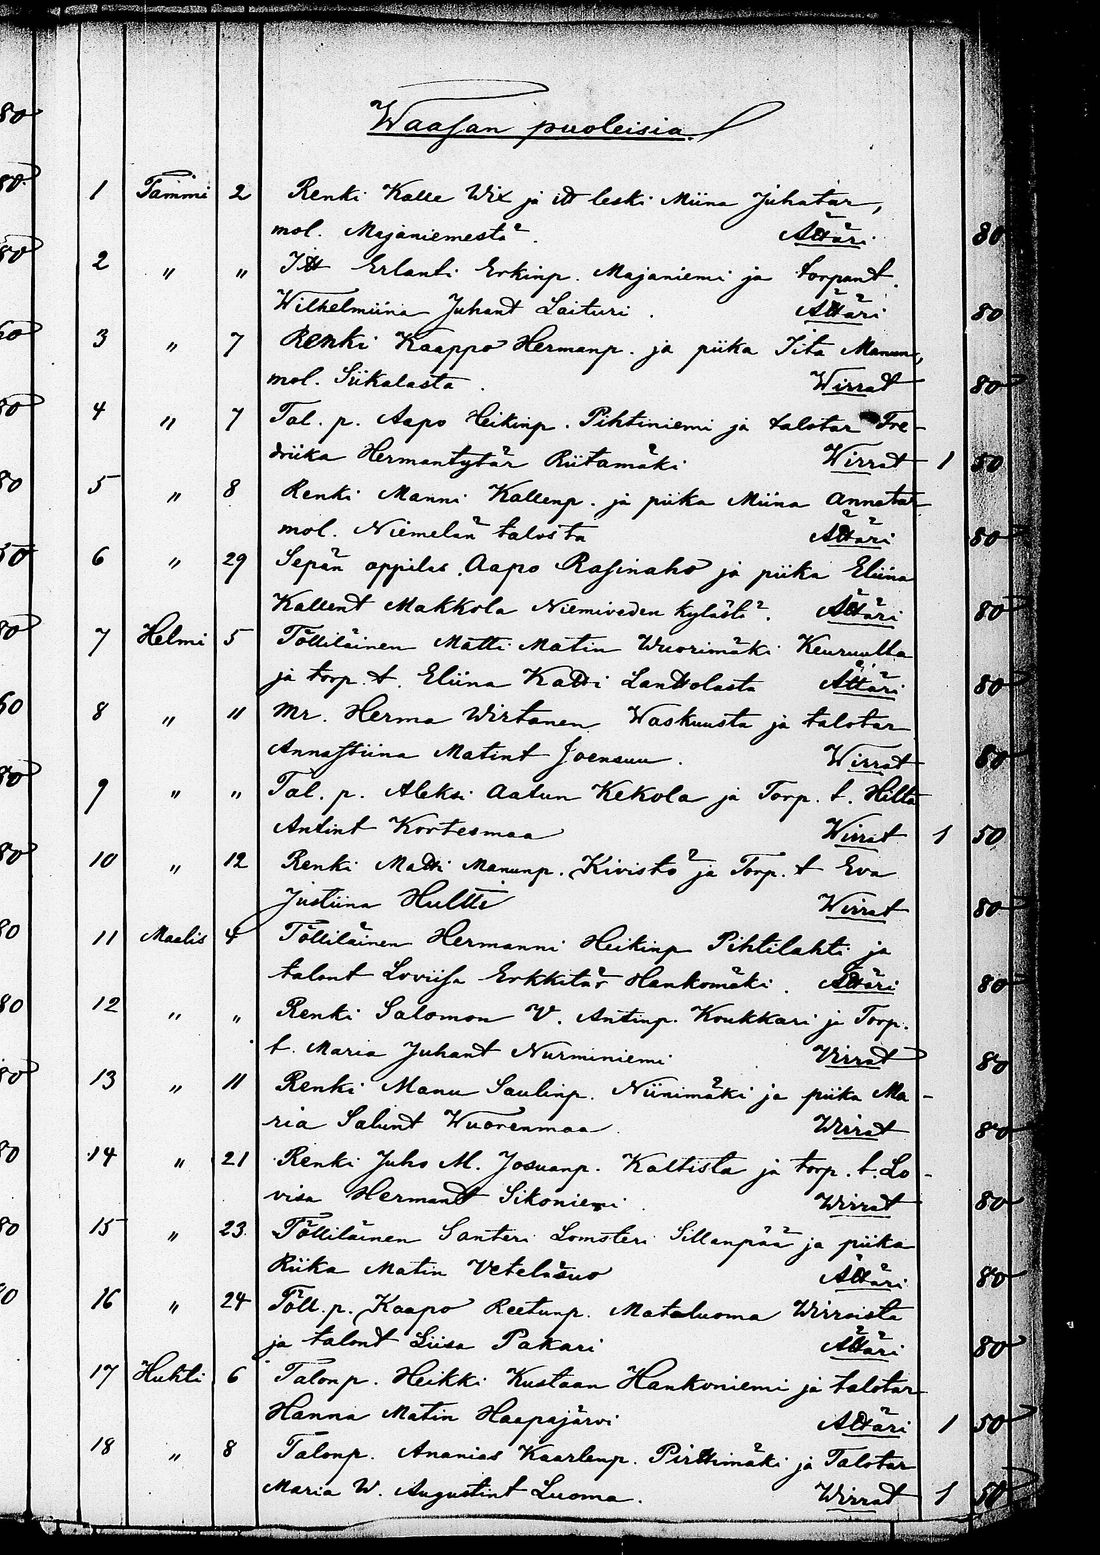 Waasan puoleisia
1 Tammi 2 Renki Kalle Wix ja itt leski Miina Juhatar,
mol. Majaniemestä. Ättäri 80
2 " " Itt Erlanti Erkinp. Majaniemi ja torpant.
Wilhelmiina Juhant Laituri. Ättäri 80
3 " 7 Renki Kaappo Hermanp. ja piika Iita Manun,
mol. Siikalasta. Wirrat 80
4 " 7 Tal. p. Aapo Heikinp. Pihtiniemi ja talotar Fre-
driika Hermantytär Riitamäki Wirrat 1 50
5 " 8 Renki Manni Kallenp. ja piika Miina Annatar
mol. Niemelän talosta Ättäri 80
6 " 29 Sepän oppilas Aapo Rasinaho ja piika Eliina
Kallent Makkola Niemiveden kylästä. Ättäri 80
7 Helmi 5 Tölliläinen Matti Matin Wuorimäki Keuruulla
ja torp. t. Eliina Katri Lanttolasta Ättäri 80
8 " 11 Mr. Herma Wirtanen Waskuusta ja talotar
Annastiina Matint Joensuu. Wirrat 80
9 " " Tal. p. Aleksi Aatun Kekola ja Torp. t. Hilta
Antint Kortesmaa Wirrat 1 50
10 " 12 Renki Matti Manunp. Kivistö ja Torp. t Eva
Justiina Hultti Wirrat 80
11 Maalis 4 Tölliläinen Hermanni Heikinp Pihtilahti ja
talont Loviisa Erkkitär Hankomäki. Ättäri 80
12 " " Renki Salomon V. Antinp. Koukkari ja Torp.
t. Maria Juhant Nurminiemi Virrat 80
13 " 11 Renki Manu Saulinp. Niinimäki ja piika Ma-
ria Salunt Wuorenmaa. Wirrat 80
14 " 21 Renki Juho M. Josuanp. Kaltista ja torp. t. Lo-
visa Hermantt Sikoniemi. Wirrat 80
15 " 23 Tölliläinen Santeri Lomsteri Sillanpää ja piika
Riika Matin Veteläsuo Ättäri 80
16 " 24 Töll. p. Kaapo Reetunp. Mataluoma Wirroista
ja talont Liisa Pakari Ättäri 80
17 Huhti 6 Talonp. Heikki Kustaan Hankoniemi ja talotar
Hanna Matin Haapajärvi Ättäri 1 50
18 " 8 Talonp. Ananias Kaarlenp. Pirttimäki ja Talotar
Maria W. Augustint Luoma. Wirrat 1 50